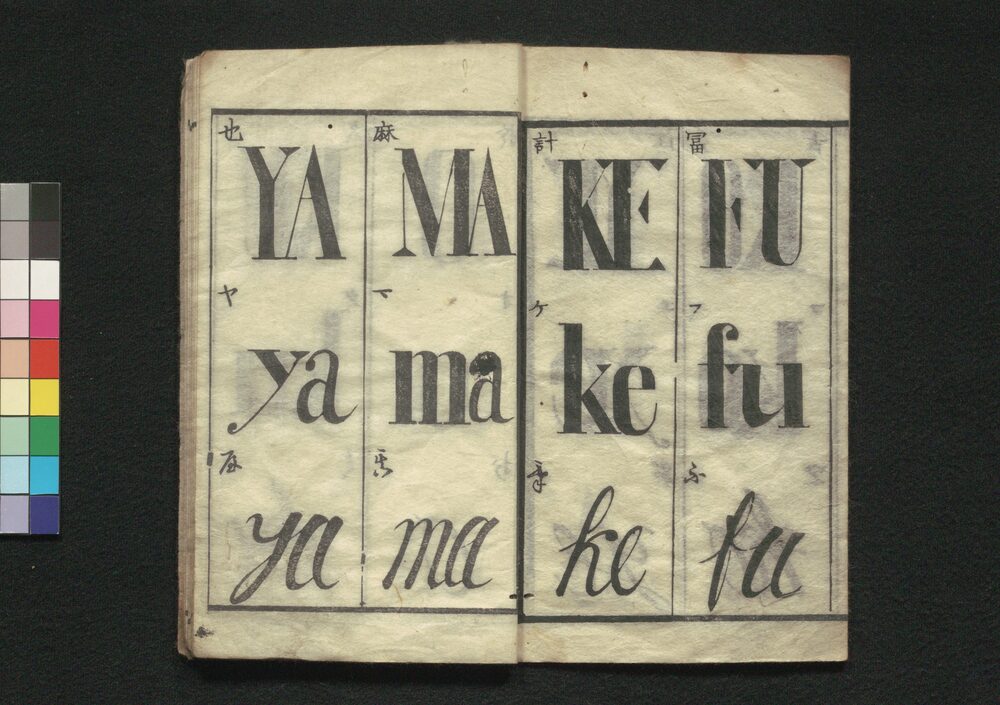 也
YA
ヤ
ya
ya
麻
MA
マ
ma
ma
計
KE
ケ
ke
ke
冨
FU
フ
fu
fu